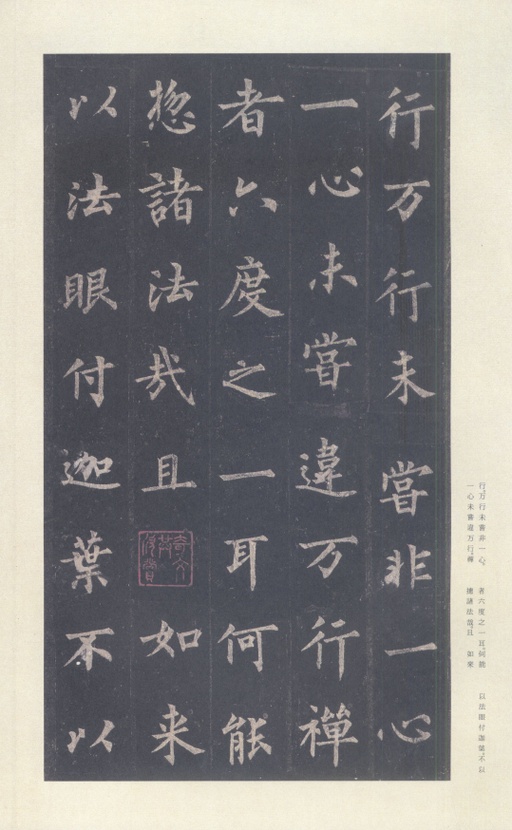 行万行未嘗非一心
一心未嘗違万行禪
者六度之一耳何能
揔諸法㢤且如来
以法眼付迦葉不以
行万行未嘗非一心、
一心未嘗違万行。禪
者六度之一耳。何能
揔諸法哉。且 如來
以法眼付迦葉。不以